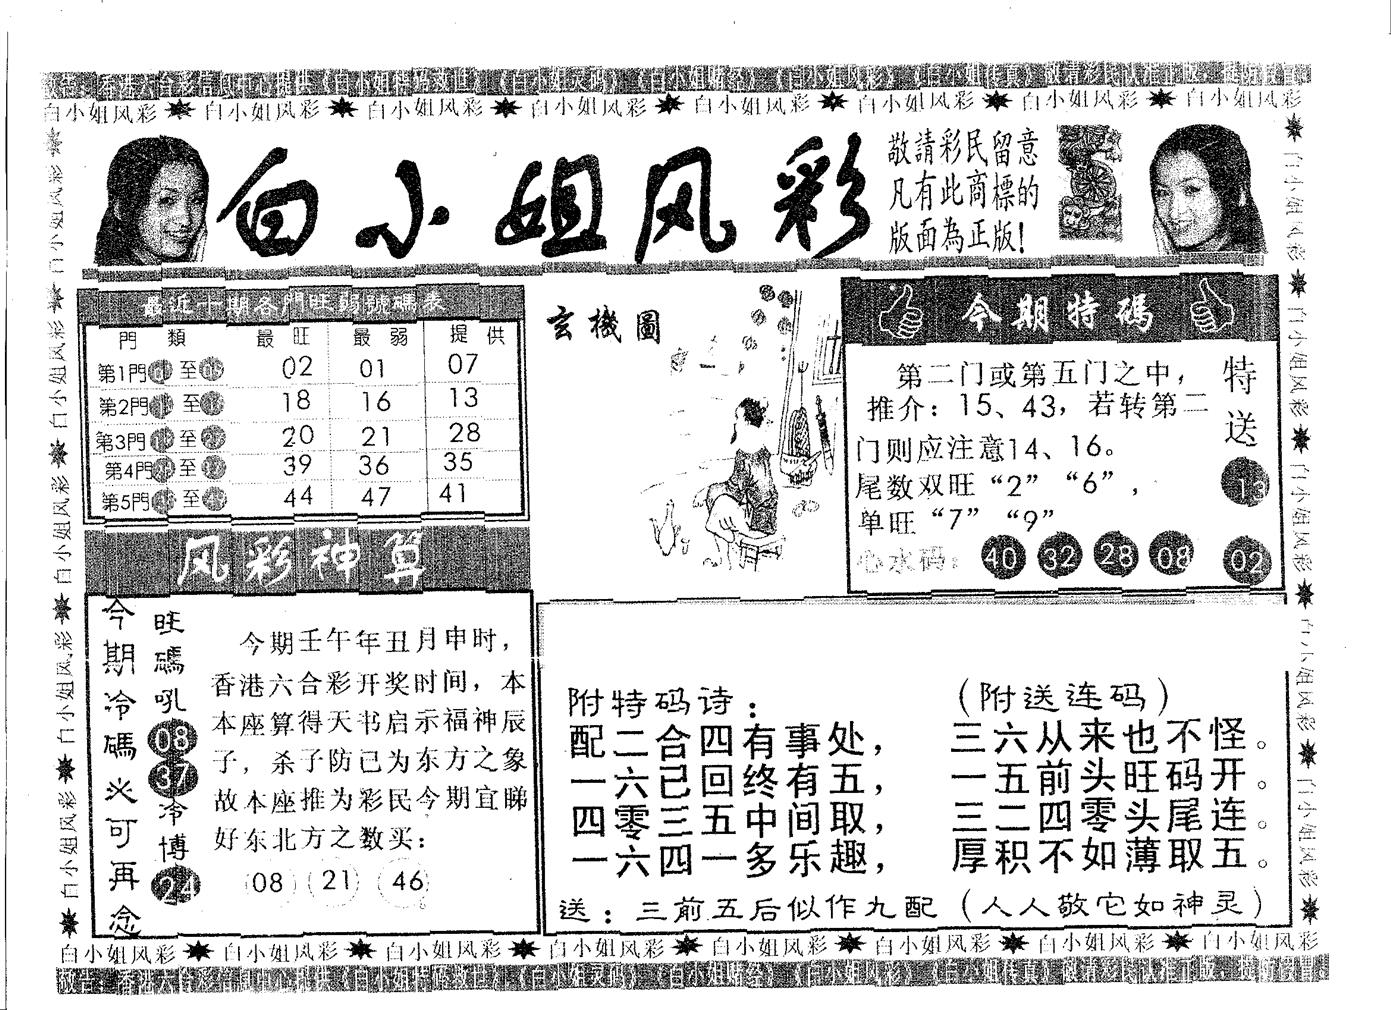 敬告：香港六合彩信息中心提供《白小姐特码救世》《白小姐灵码》《白小姐赌经》《白小姐风彩》《白小姐传真》敬请彩民认准正版，提防假冒
白小姐风彩 白小姐风彩 白小姐风彩 白小姐风彩 白小姐风彩 白小姐风彩 白小姐风彩 白小姐风彩
白小姐风彩
敬請彩民留意
凡有此商標的
版面為正版！
最近十期各門旺弱號碼表
門 類 最 旺 最 弱 提 供
第1門 至 02 01 07
第2門 至 18 16 13
第3門 至 20 21 28
第4門 至 39 36 35
第5門 至 44 47 41
玄機圖
今期特碼
第二门或第五门之中，
推介：15、43，若转第二
门则应注意14、16。
尾数双旺“2” “6”，
单旺“7” “9”
心水码： 40 32 28 08
特送 13 02
风彩神算
今期冷碼必可再念
旺碼吼 08 37 冷博 24
今期壬午年丑月申时，
香港六合彩开奖时间，本
本座算得天书启示福神辰
子，杀子防已为东方之象
故本座推为彩民今期宜睇
好东北方之数买：
08 21 46
附特码诗： （附送连码）
配二合四有事处， 三六从来也不怪。
一六已回终有五， 一五前头旺码开。
四零三五中间取， 三二四零头尾连。
一六四一多乐趣， 厚积不如薄取五。
送：三前五后似作九配（人人敬它如神灵）
白小姐风彩 白小姐风彩 白小姐风彩 白小姐风彩 白小姐风彩 白小姐风彩 白小姐风彩 白小姐风彩